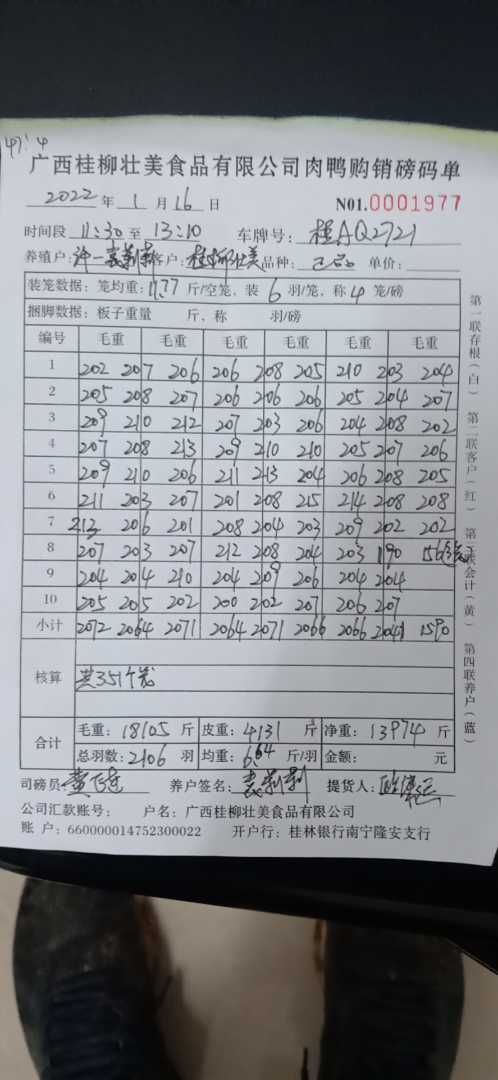 47:4
广西桂柳壮美食品有限公司肉鸭购销磅码单
2022 年 1 月 16 日 N01.0001977
时间段 11:30 至 13:10 车牌号: 桂AQ2721
养殖户: 许一 袁莉莉 客户: 桂柳壮美 品种: 单价:
装笼数据: 笼均重: 11.77 斤/空笼, 装 6 羽/笼, 称 4 笼/磅
捆脚数据: 板子重量 斤, 称 羽/磅
编号 毛重 毛重 毛重 毛重 毛重
1 202 207 206 206 208 205 210 203 204
2 205 208 207 206 206 206 205 204 207
3 209 210 212 207 203 206 204 208 202
4 207 208 213 209 210 210 205 207 206
5 209 210 206 211 213 204 206 208 205
6 211 203 207 201 208 215 214 208 208
7 212 206 201 208 204 203 209 202 202
8 207 203 207 212 208 204 203 190 156
9 204 204 210 204 209 206 204 204
10 205 205 202 200 202 207 206 207
小计 2072 2064 2071 2064 2071 2066 2066 2041 1590
核算 共351个笼
合计 毛重: 18105 斤 皮重: 4131 斤 净重: 13974 斤
总羽数: 2106 羽 均重: 6.64 斤/羽 金额: 元
司磅员: 养户签名: 袁莉莉 提货人:
公司汇款账号: 户名: 广西桂柳壮美食品有限公司
账 户: 660000014752300022 开户行: 桂林银行南宁隆安支行
第一联存根(白) 第二联客户(红) 第三联会计(黄) 第四联养户(蓝)